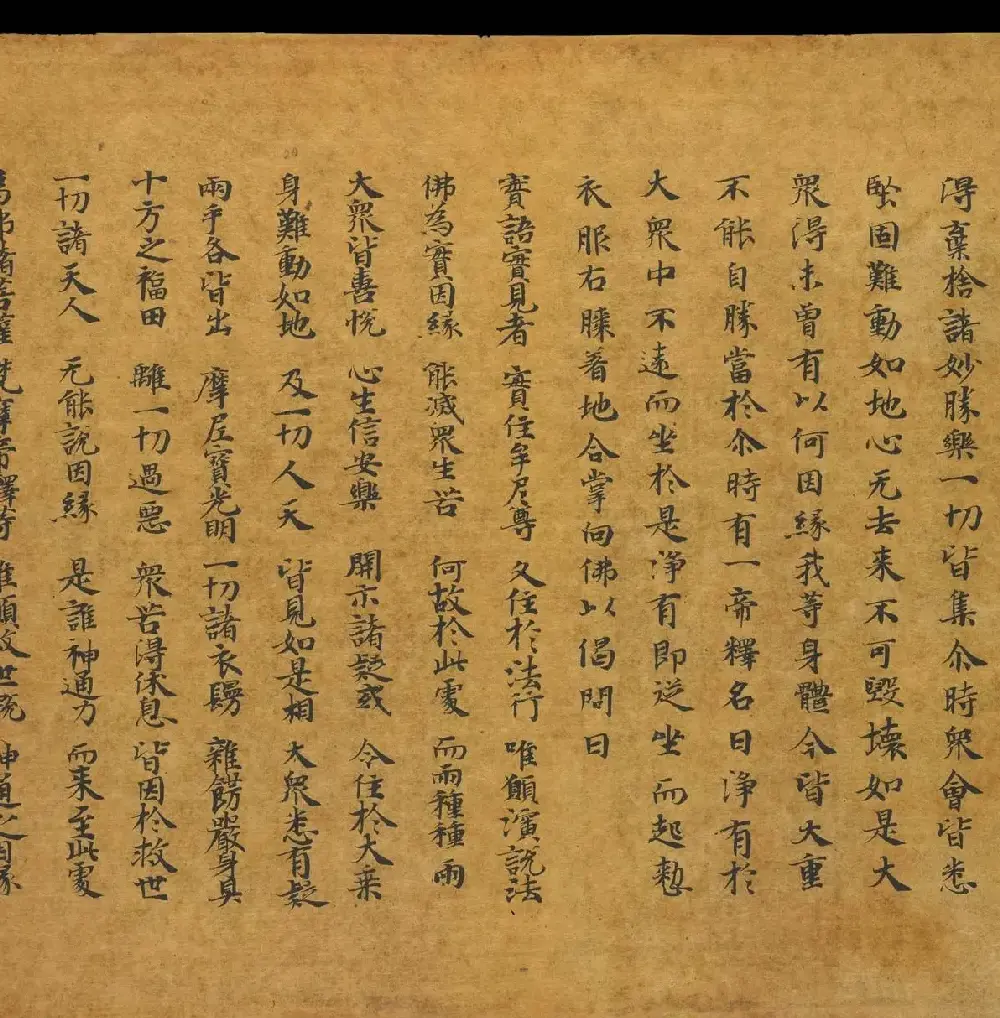 得棄捨諸妙勝樂一切皆集尒時衆會皆悉
堅固難動如地心无去来不可毀壞如是大
衆得未曾有以何因緣我等身體今皆大重
不能自勝當於尒時有一帝釋名曰淨有於
大衆中不遠而坐於是淨有即從坐而起整
衣服右膝着地合掌向佛以偈問曰
實語實見者 實住牟尼尊 久住於法行 唯願演說法
佛為實因緣 能滅衆生苦 何故於此處 而雨種種雨
大衆皆喜悅 心生信安樂 開示諸疑或 令住於大乗
身難動如地 及一切人天 皆見如是相 大衆悉有疑
兩手各皆出 摩尼寶光明 一切諸衣鬘 雜餝嚴身具
十方之福田 離一切過惡 衆苦得休息 皆因於救世
一切諸天人 无能說因緣 是誰神通力 而来至此處
梵釋 唯願救世說 神通之因緣